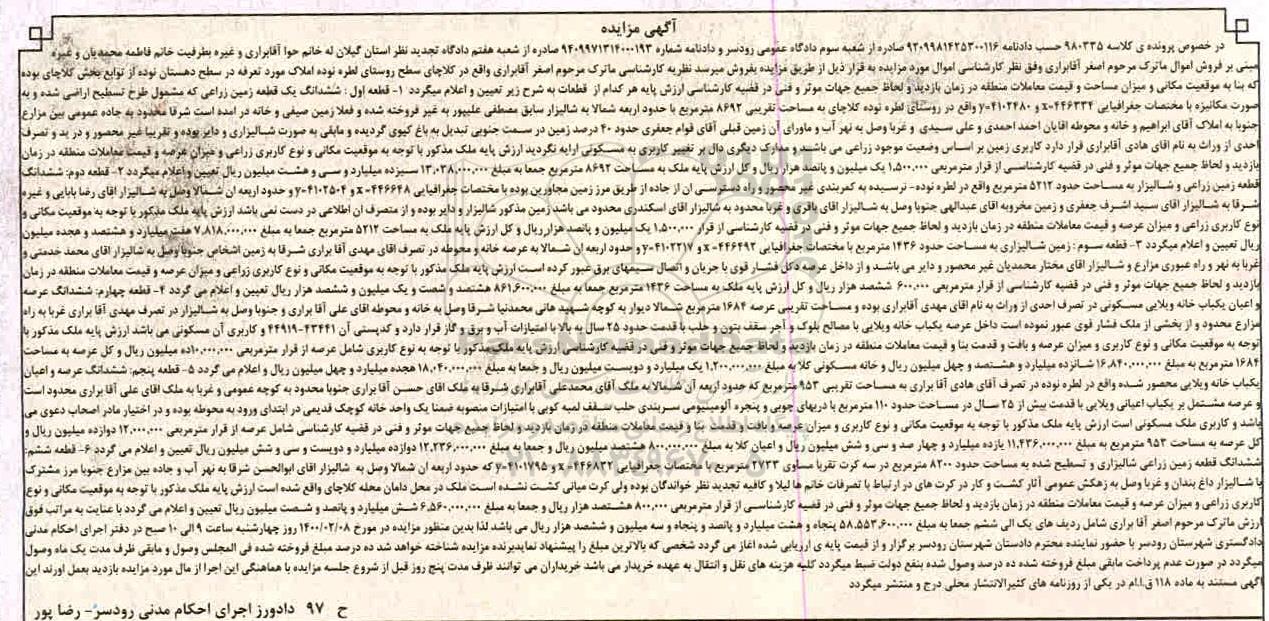 آگهی مزایده
در خصوص پرونده ی کلاسه ۹۸۰۳۳۵ حسب دادنامه ۹۲۰۹۹۸۱۴۲۵۳۰۰۱۱۶ صادره از شعبه سوم دادگاه عمومی رودسر و دادنامه شماره ۹۴۰۹۹۷۱۳۱۴۰۰۰۱۹۳ صادره از شعبه هفتم دادگاه تجدید نظر استان گیلان له خانم حوا آقابراری و غیره بطرفیت خانم فاطمه محمدیان و غیره
مبنی بر فروش اموال ماترک مرحوم اصغر آقابراری وفق نظر کارشناسی اموال مورد مزایده به قرار ذیل از طریق مزایده بفروش میرسد نظریه کارشناسی ماترک مرحوم اصغر آقابراری واقع در کلاچای سطح روستای لطره نوده املاک مورد تعرفه در سطح دهستان نوده از توابع بخش کلاچای بوده
که بنا به موقعیت مکانی و میزان مساحت و قیمت معاملات منطقه در زمان بازدید و لحاظ جمیع جهات موثر و فنی در قضیه کارشناسی ارزش پایه هر کدام از قطعات به شرح زیر تعیین و اعلام میگردد ۱- قطعه اول : ششدانگ یک قطعه زمین زراعی که مشمول طرح تسطیح اراضی شده و به
صورت مکانیزه با مختصات جغرافیایی ۴۴۶۳۳۴-x و ۴۱۰۲۴۸۰-y واقع در روستای لطره نوده کلاچای به مساحت تقریبی ۸۶۹۲ مترمربع با حدود اربعه شمالا به شالیزار سابق مصطفی علیپور به غیر فروخته شده و فعلا زمین صیفی و خانه در امده است شرقا محدود به جاده عمومی بین مزارع
جنوبا به املاک آقای ابراهیم و خانه و محوطه اقایان احمد احمدی و علی سیبدی و غربا وصل به نهر آب و ماورای آن زمین قبلی آقای قوام جعفری حدود ۴۰ درصد زمین در سمت جنوبی تبدیل به باغ کیوی گردیده و مابقی به صورت شالیزاری و دایر بوده و تقریبا غیر محصور و در ید و تصرف
احدی از وراث به نام اقای هادی آقابراری قرار دارد کاربری زمین بر اساس وضعیت موجود زراعی می باشد و مدارک دیگری دال بر تغییر کاربری به مسکونی ارایه نگردید ارزش پایه ملک مذکور با توجه به موقعیت مکانی و نوع کاربری زراعی و میزان عرصه و قیمت معاملات منطقه در زمان
بازدید و لحاظ جمیع جهات موثر و فنی در قضیه کارشناسی از قرار مترمربعی ۱،۵۰۰،۰۰۰ یک میلیون و پانصد هزار ریال و کل ارزش پایه ملک به مساحت ۸۶۹۲ مترمربع جمعا به مبلغ ۱۳،۰۳۸،۰۰۰،۰۰۰ سیزده میلیارد و سی و هشت میلیون ریال تعیین و اعلام میگردد ۲- قطعه دوم: ششدانگ
قطعه زمین زراعی و شالیزار به مساحت حدود ۵۲۱۲ مترمربع واقع در لطره نوده- نرسیده به کمربندی غیر محصور و راه دسترسی ان از جاده از طریق مرز زمین مجاورین بوده با مختصات جغرافیایی ۴۴۶۶۴۸-x و ۴۱۰۲۵۰۴-y و حدود اربعه ان شمالا وصل به شالیزار اقای رضا بابایی و غیره
شرقا به شالیزار اقای سید اشرف جعفری و زمین مخروبه اقای عبدالهی جنوبا وصل به شالیزار اقای باقری و غربا محدود به شالیزار اقای اسکندری محدود می باشد زمین مذکور شالیزار و دایر بوده و از متصرف ان اطلاعی در دست نمی باشد ارزش پایه ملک مذکور با توجه به موقعیت مکانی و
نوع کاربری زراعی و میزان عرصه و قیمت معاملات منطقه در زمان بازدید و لحاظ جمیع جهات موثر و فنی در قضیه کارشناسی از قرار ۱،۵۰۰،۰۰۰ یک میلیون و پانصد هزارریال و کل ارزش پایه ملک به مساحت ۵۲۱۲ مترمربع جمعا به مبلغ ۷،۸۱۸،۰۰۰،۰۰۰ هفت میلیارد و هشتصد و هجده میلیون
ریال تعیین و اعلام میگردد ۳- قطعه سوم : زمین شالیزاری به مساحت حدود ۱۴۳۶ مترمربع با مختصات جغرافیایی ۴۴۶۴۹۲-x و ۴۱۰۲۲۱۷-y و حدود اربعه ان شمالا به عرصه خانه و محوطه در تصرف اقای مهدی آقا براری شرقا به زمین اشخاص جنوبا وصل به شالیزار اقای محمد خدمتی و
غربا به نهر و راه عبوری مزارع و شالیزار اقای مختار محمدیان غیر محصور و دایر می باشد و از داخل عرصه دکل فشار قوی با جریان و اتصال سیمهای برق عبور کرده است ارزش پایه ملک مذکور با توجه به موقعیت مکانی و نوع کاربری زراعی و میزان عرصه و قیمت معاملات منطقه در زمان
بازدید و لحاظ جمیع جهات موثر و فنی در قضیه کارشناسی از قرار مترمربعی ۶۰۰،۰۰۰ ششصد هزار ریال و کل ارزش پایه ملک به مساحت ۱۴۳۶ مترمربع جمعا به مبلغ ۸۶۱،۶۰۰،۰۰۰ هشتصد و شصت و یک میلیون و ششصد هزار ریال تعیین و اعلام می گردد ۴- قطعه چهارم: ششدانگ عرصه
و اعیان یکباب خانه ویلایی مسکونی در تصرف احدی از وراث به نام اقای مهدی آقابراری بوده و مساحت تقریبی عرصه ۱۶۸۴ مترمربع شمالا دیوار به کوچه شهید هانی محمدنیا شرقا وصل به خانه و محوطه اقای علی آقا براری و جنوبا وصل به شالیزار در تصرف مهدی آقا براری غربا به راه
مزارع محدود و از بخشی از ملک فشار قوی عبور نموده است داخل عرصه یکباب خانه ویلایی با مصالح بلوک و آجر سقف بتون و حلب با قدمت حدود ۲۵ سال به بالا با امتیازات آب و برق و گاز قرار دارد و کدپستی آن ۴۳۴۴۱-۴۴۹۱۹ و کاربری آن مسکونی می باشد ارزش پایه ملک مذکور با
توجه به موقعیت مکانی و نوع کاربری و میزان عرصه و بافت و قدمت بنا و قیمت معاملات منطقه در زمان بازدید و لحاظ جمیع جهات موثر و فنی در قضیه کارشناسی ارزش پایه ملک مذکور با توجه به نوع کاربری شامل عرصه از قرار مترمربعی ۱۰،۰۰۰،۰۰۰ده میلیون ریال و کل عرصه به مساحت
۱۶۸۴ مترمربع به مبلغ ۱۶،۸۴۰،۰۰۰،۰۰۰ شانزده میلیارد و هشتصد و چهل میلیون ریال و خانه مسکونی کلا به مبلغ ۱،۲۰۰،۰۰۰،۰۰۰ یک میلیارد و دویست میلیون ریال و جمعا به مبلغ ۱۸،۰۴۰،۰۰۰،۰۰۰ هجده میلیارد و چهل میلیون ریال و اعلام می گردد ۵- قطعه پنجم: ششدانگ عرصه و اعیان
یکباب خانه ویلایی محصور شده واقع در لطره نوده در تصرف آقای هادی آقا براری به مساحت تقریبی ۹۵۳ مترمربع که حدود اربعه آن شمالا به ملک آقای محمدعلی آقابراری شرقا به ملک اقای حسن آقا براری جنوبا محدود به کوچه عمومی و غربا به ملک اقای علی آقا براری محدود است
و عرصه مشتمل بر یکباب اعیانی ویلایی با قدمت بیش از ۲۵ سال در مساحت حدود ۱۱۰ مترمربع با دربهای چوبی و پنجره آلومینیومی سربندی حلب سقف لمبه کوبی با امتیازات منصوبه ضمنا یک واحد خانه کوچک قدیمی در ابتدای ورود به محوطه بوده و در اختیار مادر اصحاب دعوی می
باشد و کاربری ملک مسکونی است ارزش پایه ملک مذکور با توجه به موقعیت مکانی و نوع کاربری و میزان عرصه و بافت و قدمت بنا و قیمت معاملات منطقه در زمان بازدید و لحاظ جمیع جهات موثر و فنی در قضیه کارشناسی شامل عرصه از قرار مترمربعی ۱۲،۰۰۰،۰۰۰ دوازده میلیون ریال و
کل عرصه به مساحت ۹۵۳ مترمربع به مبلغ ۱۱،۴۳۶،۰۰۰،۰۰۰ یازده میلیارد و چهار صد و سی و شش میلیون ریال و اعیان کلا به مبلغ ۸۰۰،۰۰۰،۰۰۰ هشتصد میلیون ریال و جمعا به مبلغ ۱۲،۲۳۶،۰۰۰،۰۰۰ دوازده میلیارد و دویست و سی و شش میلیون ریال تعیین و اعلام می گردد ۶- قطعه ششم:
ششدانگ قطعه زمین زراعی شالیزاری و تسطیح شده به مساحت حدود ۸۲۰۰ مترمربع در سه کرت تقریا مساوی ۲۷۳۳ مترمربع با مختصات جغرافیایی ۴۴۶۸۳۲-x و ۴۱۰۱۷۹۵-y که حدود اربعه ان شمالا وصل به شالیزار اقای ابوالحسن شرقا به نهر آب و جاده بین مزارع جنوبا مرز مشترک
با شالیزار داغ بندان و غربا وصل به زهکش عمومی آثار کشت و کار در کرت های در ارتباط با تصرفات خانم ها لیلا و کافیه تجدید نظر خواندگان بوده ولی کرت میانی کشت نشده است ملک در محل دامان محله کلاچای واقع شده است ارزش پایه ملک مذکور با توجه به موقعیت مکانی و نوع
کاربری زراعی و میزان عرصه و قیمت معاملات منطقه در زمان بازدید و لحاظ جمیع جهات موثر و فنی در قضیه کارشناسی از قرار مترمربعی ۸۰۰،۰۰۰ هشتصد هزار ریال و جمعا به مبلغ ۶،۵۶۰،۰۰۰،۰۰۰ شش میلیارد و پانصد و شصت میلیون ریال تعیین و اعلام می گردد با عنایت به مراتب فوق
ارزش ماترک مرحوم اصغر آقا براری شامل ردیف های یک الی ششم جمعا به مبلغ ۵۸،۵۵۳،۶۰۰،۰۰۰ پنجاه و هشت میلیارد و پانصد و پنجاه و سه میلیون و ششصد هزار ریال می باشد لذا بدین منظور مزایده در مورخ ۱۴۰۰/۰۲/۰۸ روز چهارشنبه ساعت ۹ الی ۱۰ صبح در دفتر اجرای احکام مدنی
دادگستری شهرستان رودسر با حضور نماینده محترم دادستان شهرستان رودسر برگزار و از قیمت پایه ی ارزیابی شده اغاز می گردد شخصی که بالاترین مبلغ را پیشنهاد نمایدبرنده مزایده شناخته خواهد شد ده درصد مبلغ فروخته شده فی المجلس وصول و مابقی ظرف مدت یک ماه وصول
میگردد در صورت عدم پرداخت مابقی مبلغ فروخته شده ده درصد وصول شده بنفع دولت ضبط میگردد کلیه هزینه های نقل و انتقال به عهده خریدار می باشد خریداران می توانند ظرف مدت پنج روز قبل از شروع جلسه مزایده با هماهنگی این اجرا از مال مورد مزایده بازدید بعمل اورند این
اگهی مستند به ماده ۱۱۸ ق.ا.ا.م در یکی از روزنامه های کثیرالانتشار محلی درج و منتشر میگردد
ح ۹۷ دادورز اجرای احکام مدنی رودسر- رضا پور